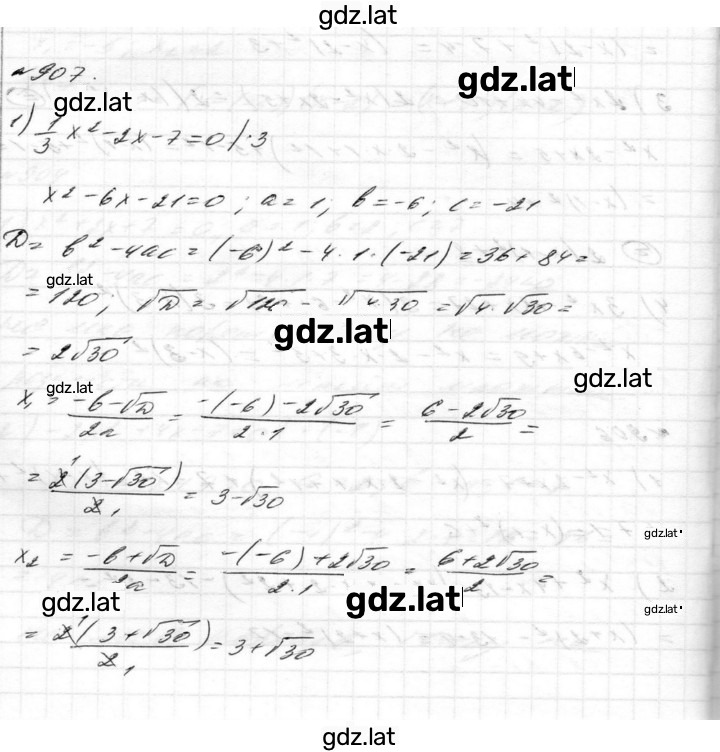 gdz.lat
№907.
gdz.lat
gdz.lat
1) 1/3 x² - 2x - 7 = 0 /·3
x² - 6x - 21 = 0 ; a = 1; b = -6; c = -21
D = b² - 4ac = (-6)² - 4·1·(-21) = 36 + 84 =
gdz.lat
= 120; √D = √120 = √4·30 = √4·√30 =
gdz.lat
= 2√30
gdz.lat
gdz.lat
x₁ = (-b-√D)/2a = (-(-6)-2√30)/(2·1) = (6-2√30)/2 =
= 2¹(3-√30)/2₁ = 3-√30
gdz.lat
x₂ = (-b+√D)/2a = (-(-6)+2√30)/(2·1) = (6+2√30)/2 =
gdz.lat
gdz.lat
gdz.lat
= 2¹(3+√30)/2₁ = 3+√30
gdz.lat